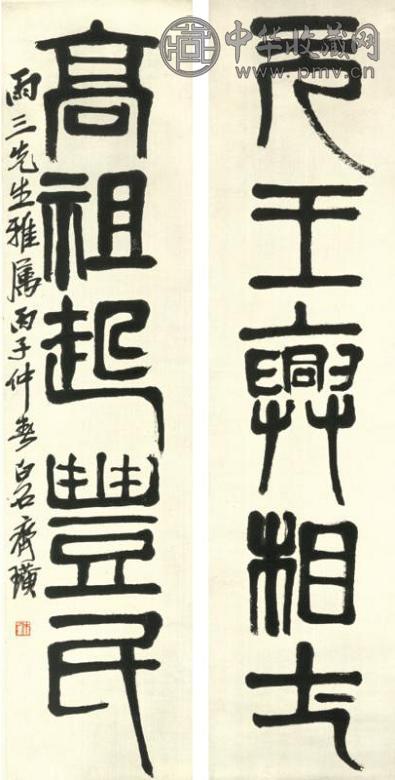 中华收藏网
www.pmv.cn
王興相
高祖起豐民
雨三先生雅屬丙子仲春白石齊璜